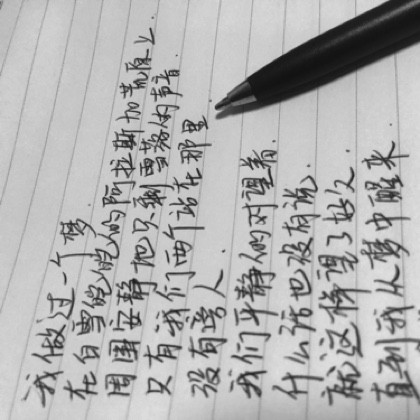 我做过一个梦
在白雪皑皑的阿拉斯加荒原上.
周围安静地只剩雪落的声音.
只有我们两个站在那里
没有旁人.
我们平静的对望着.
什么话也没有说.
就这样望了好久.
直到我从梦中醒来